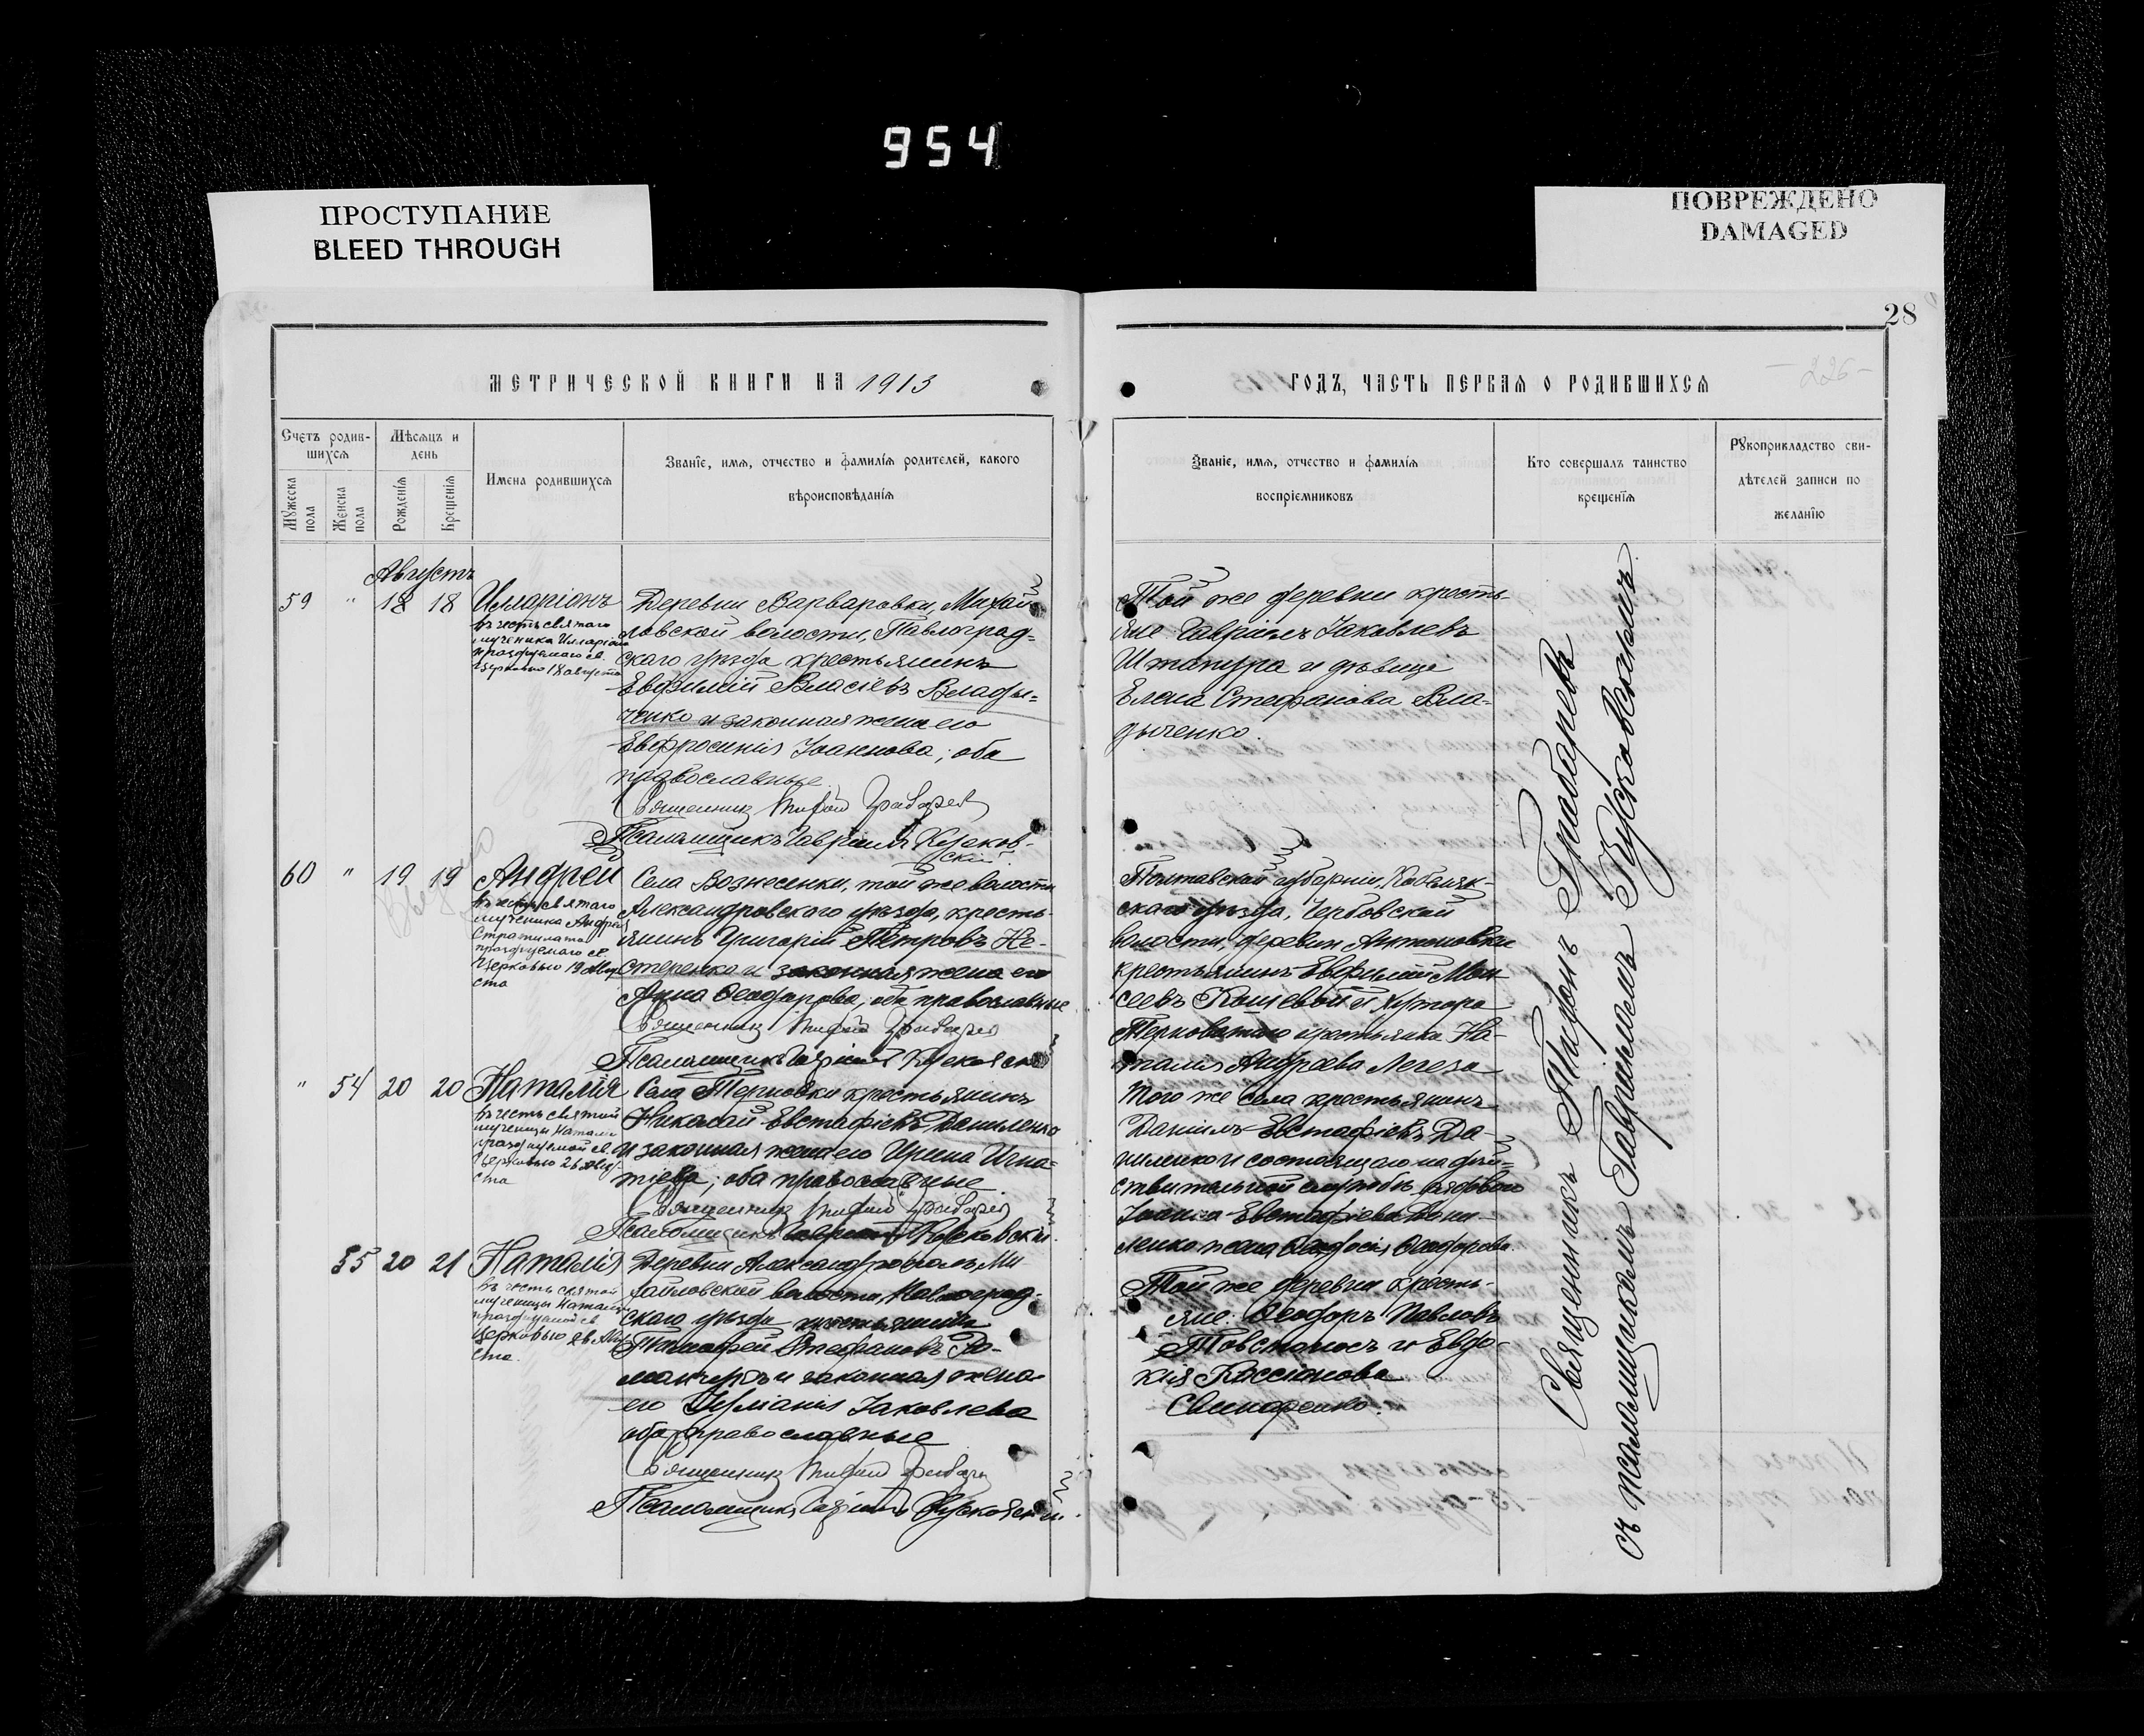 954
ПРОСТУПАНИЕ
BLEED THROUGH
ПОВРЕЖДЕНО
DAMAGED
28
МЕТРИЧЕСКОЙ КНИГИ НА 1913
ГОДЪ, ЧАСТЬ ПЕРВАЯ О РОДИВШИХСЯ
-226-
Счетъ родив-
шихся
Мѣсяцъ и
день
Мужеска
пола
Женска
пола
Рожденія
Крещенія
Имена родившихся
Званіе, имя, отчество и фамилія родителей, какого
вѣроисповѣданія
Званіе, имя, отчество и фамилія
воспріемниковъ
Кто совершалъ таинство
крещенія
Рукоприкладство сви-
дѣтелей записи по
желанію
Августъ
59 " 18 18
Илларіонъ
въ честь святаго
мученика Илларіона
празднуемаго св.
Церковью 18 августа
Деревни Варваровки, Михай
ловской волости, Павлоград=
скаго уѣзда крестьянинъ
Евфимій Власіевъ Влады=
ченко и законная жена его
Евфросинія Іоаннова; оба
православные
Священникъ Тифонъ Грабаревъ
Псаломщикъ Гавріилъ Кусков-
скій.
Той же деревни кресть-
яне: Гавріилъ Іаковлевъ
Штапура и дѣвица
Елена Стефанова Вла-
дыченко.
60 " 19 19
Андрей
въ честь святаго
мученика Андрея
Стратилата
празднуемаго св.
Церковью 19 Авгу
ста
Села Вознесенки, той же волости
Александровскаго уѣзда, кресть-
янинъ Григорій Петровъ Не-
стеренко и законная жена его
Анна Ѳеодорова, оба православные
Священникъ Тифонъ Грабаревъ
Псаломщикъ Гавріилъ Кусковскій
Полтавской губерніи, Кобеляк-
скаго уѣзда,
волости, деревни Антоновки
крестьянинъ Евфимій Мои
сеевъ Кошевой и хутора
крестьянка На-
талія Андреева Легеза
" 54 20 20
Наталія
въ честь святой
мученицы Наталіи
празднуемой св.
Церковью 26 Авгу-
ста
Села Терновки крестьянинъ
Николай Евстафіевъ Даниленко
и законная жена его Ирина Игна-
тіева; оба православные
Священникъ Тифонъ Грабаревъ
Псаломщикъ Гавріилъ Кусковскій.
Того же села крестьянинъ
Даніилъ Евстафіевъ Да-
ниленко и состоящаго на дѣй=
ствительной службѣ рядового
Іоанна Евстафіева Дани-
ленко жена Ѳеодосія Ѳеодорова.
55 20 21
Наталія
въ честь святой
мученицы Наталіи
празднуемой св
Церковью 26 Авгу
ста.
Деревни Александрополь, Ми
хайловской волости, Павлоград-
скаго уѣзда крестьянинъ
Тимофей Стефановъ До-
и законная жена
его Іуліанія Іаковлева
оба православные
Священникъ Тифонъ Грабаревъ
Псаломщикъ Гавріилъ Кусковскій.
Той же деревни кресть-
яне: Ѳеодоръ Павловъ
Товстоносъ и Евдо-
кія Кассіанова
Свинаренко.
Священникъ Тифонъ Грабаревъ
съ псаломщикомъ Гавріиломъ Кусковскимъ.